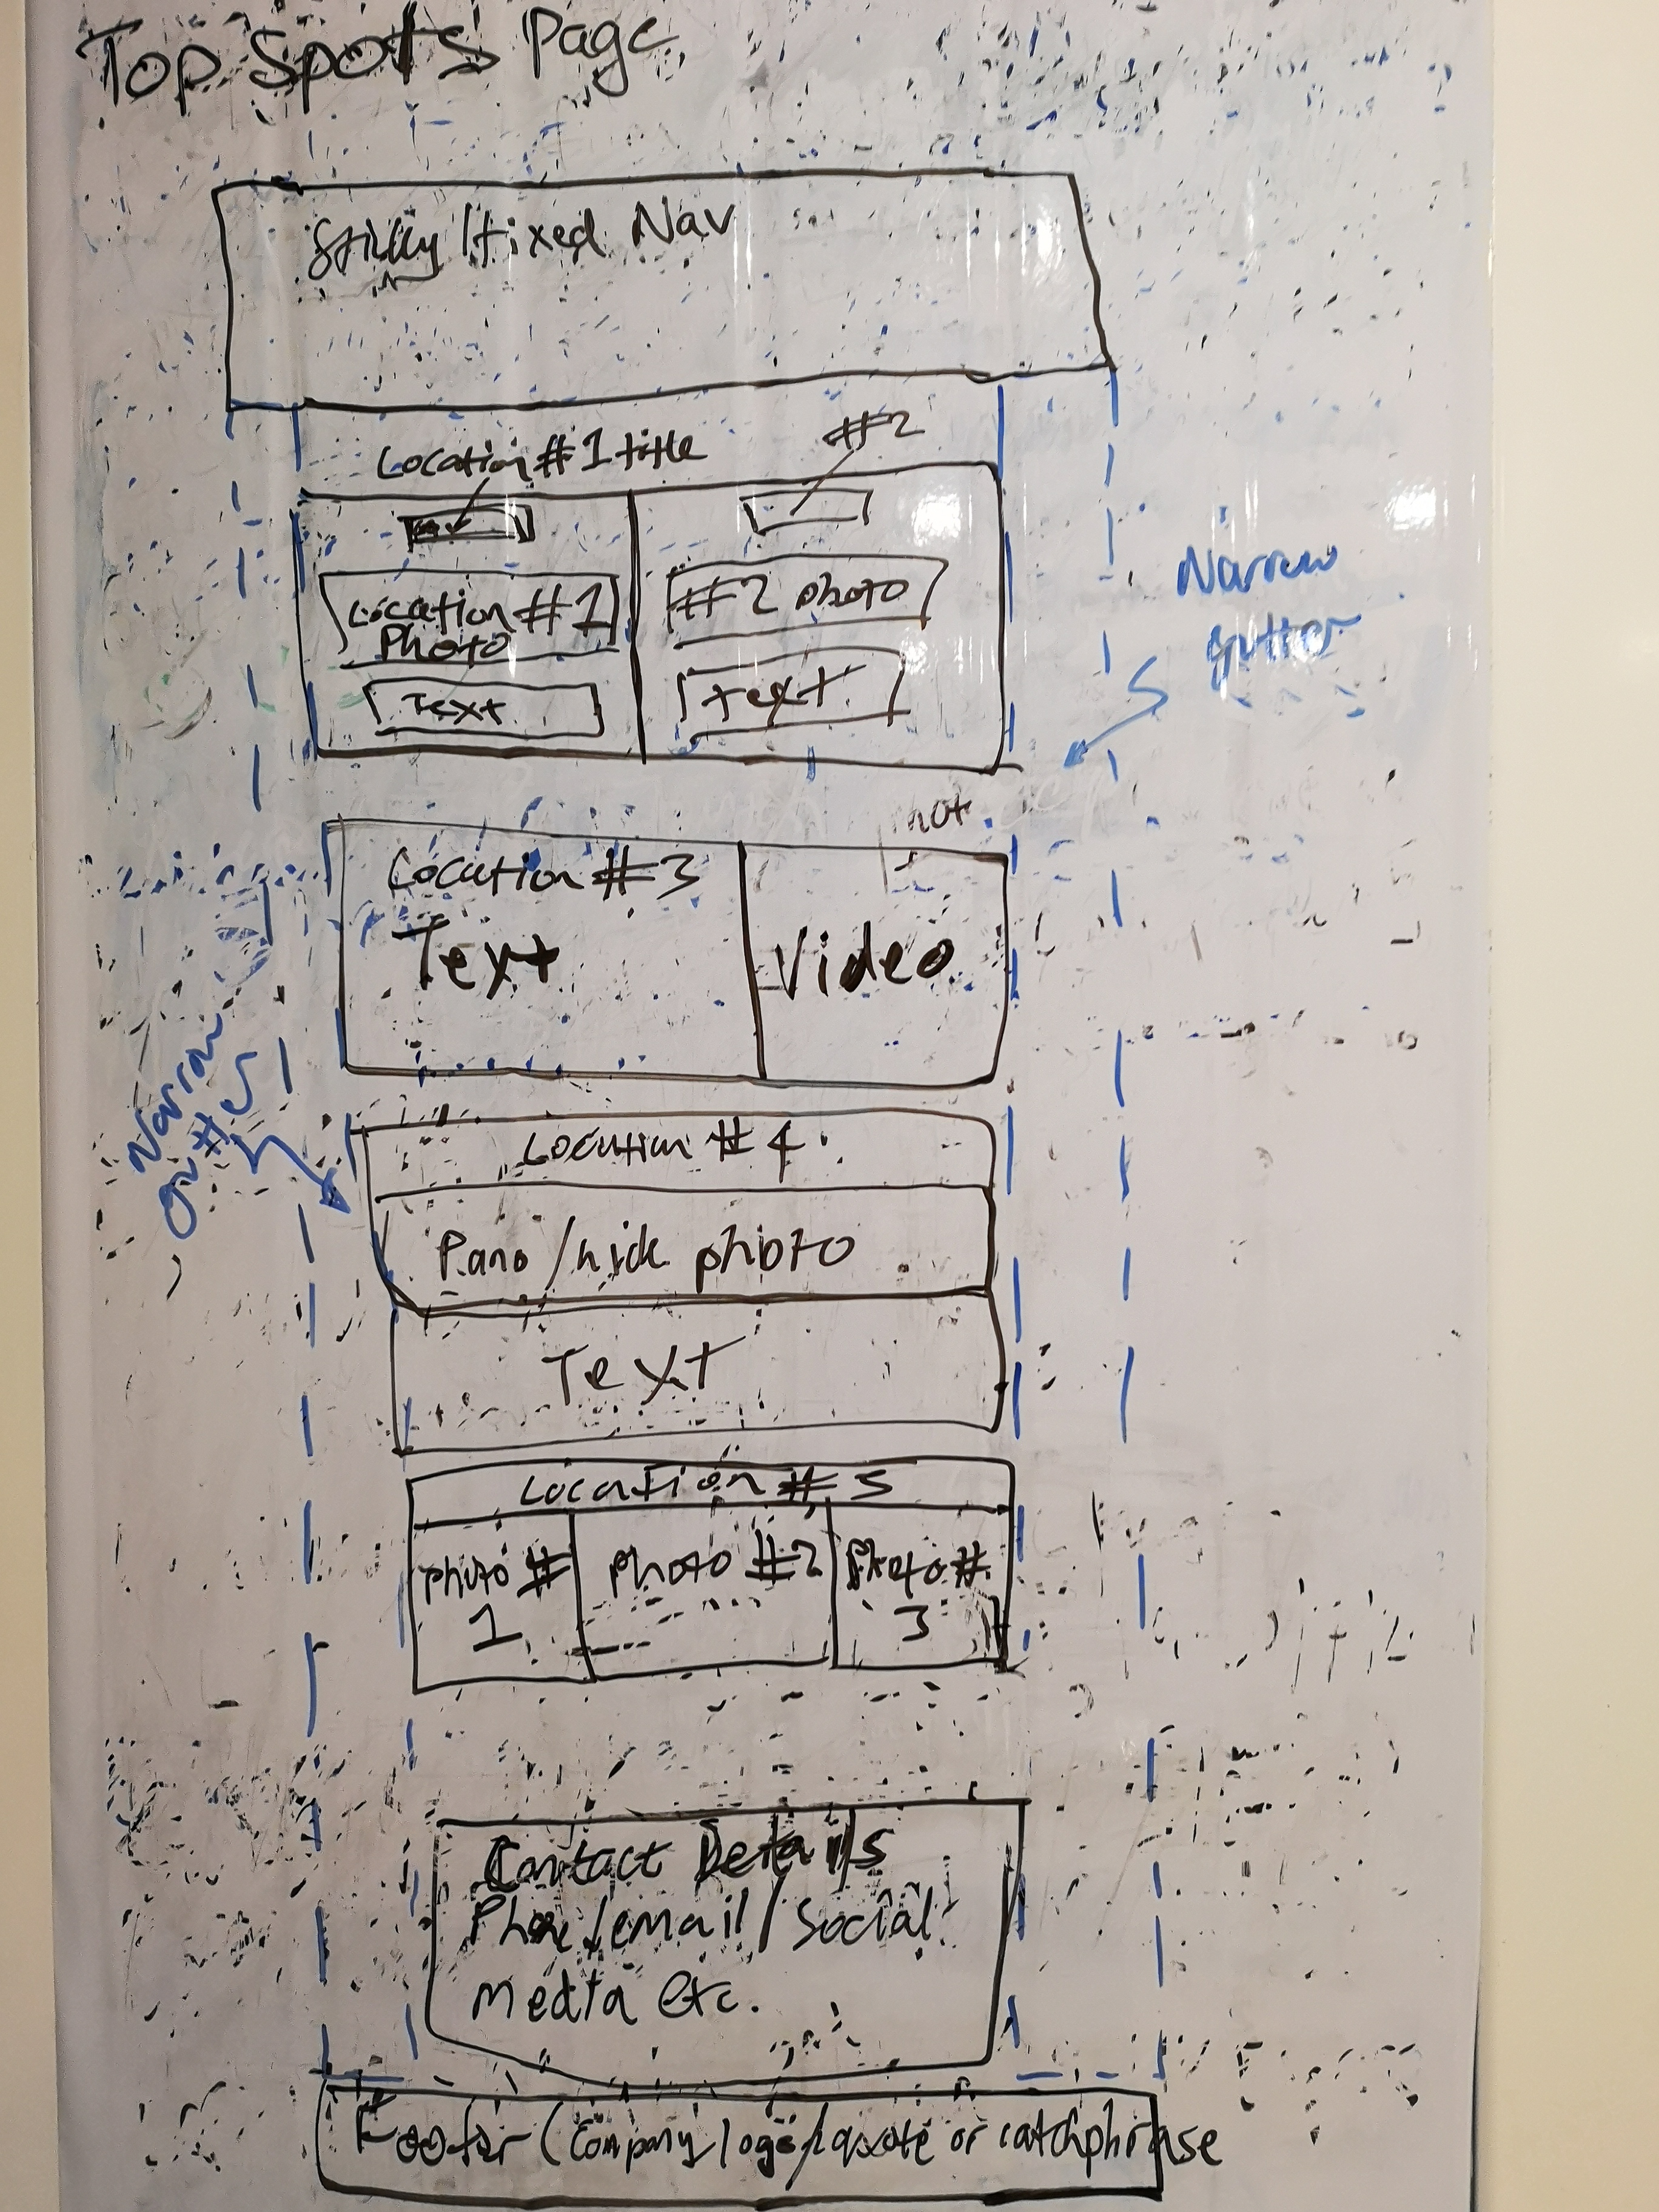 Top Spots Page
Sticky/fixed Nav
Location #1 title
#2
Location #1
Photo
#2 photo
Text
text
Narrow
gutter
Location #3
Text
Video
Narrow
gutter
Location #4
Pano/wide photo
Text
Location #5
photo #
1
photo #2
Photo #
3
Contact Details
Phone/email/social
media etc.
Footer (Company logo/quote or catchphrase